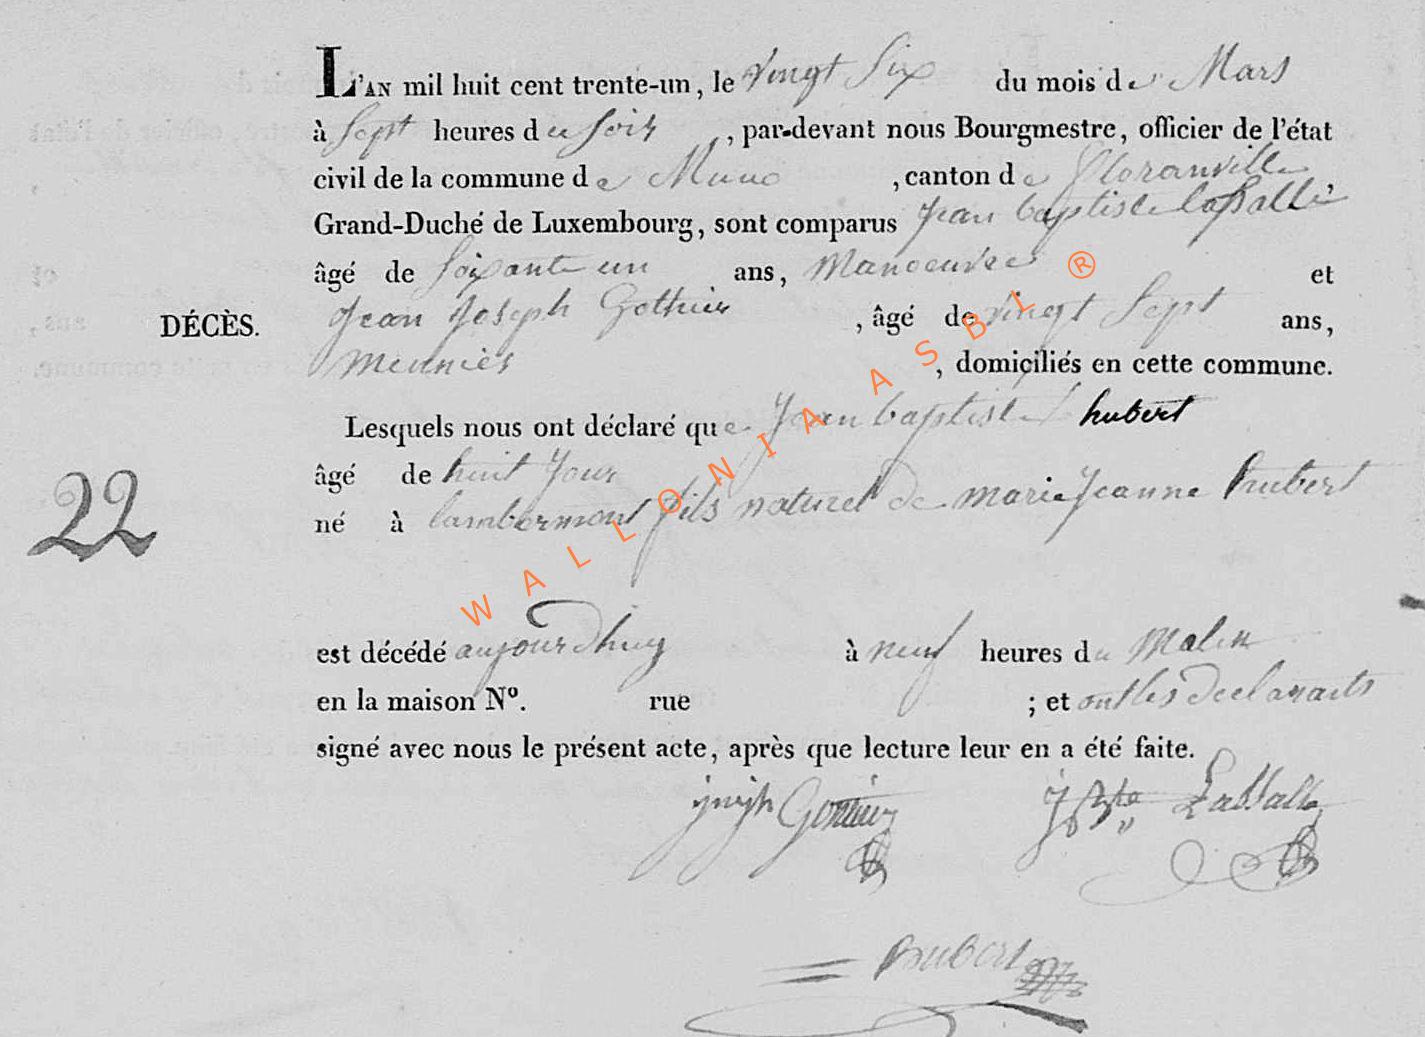 L'AN mil huit cent trente-un, le vingt Six du mois de Mars
à Sept heures du Soir, par-devant nous Bourgmestre, officier de l'état
civil de la commune de Muno, canton de floranville,
Grand-Duché de Luxembourg, sont comparus jean baptiste laSalle
âgé de Soixante un ans, Manoeuvre et
DÉCÈS.
jean joseph Gothier, âgé de vingt Sept ans,
meunier, domiciliés en cette commune.
Lesquels nous ont déclaré que jean baptiste hubert
âgé de huit jour
22
né à lambermont fils naturel de marie jeanne hubert
est décédé aujourdhuy à neuf heures du Matin
en la maison N°. rue ; et ont les declarants
signé avec nous le présent acte, après que lecture leur en a été faite.
joseph J Bte LaSSalle
hubert
WALLONIA ASBL ®